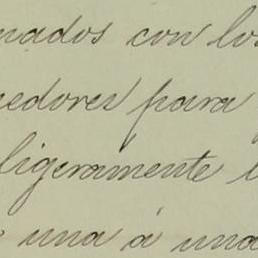 nados con los
edores para
ligeramente
una á una